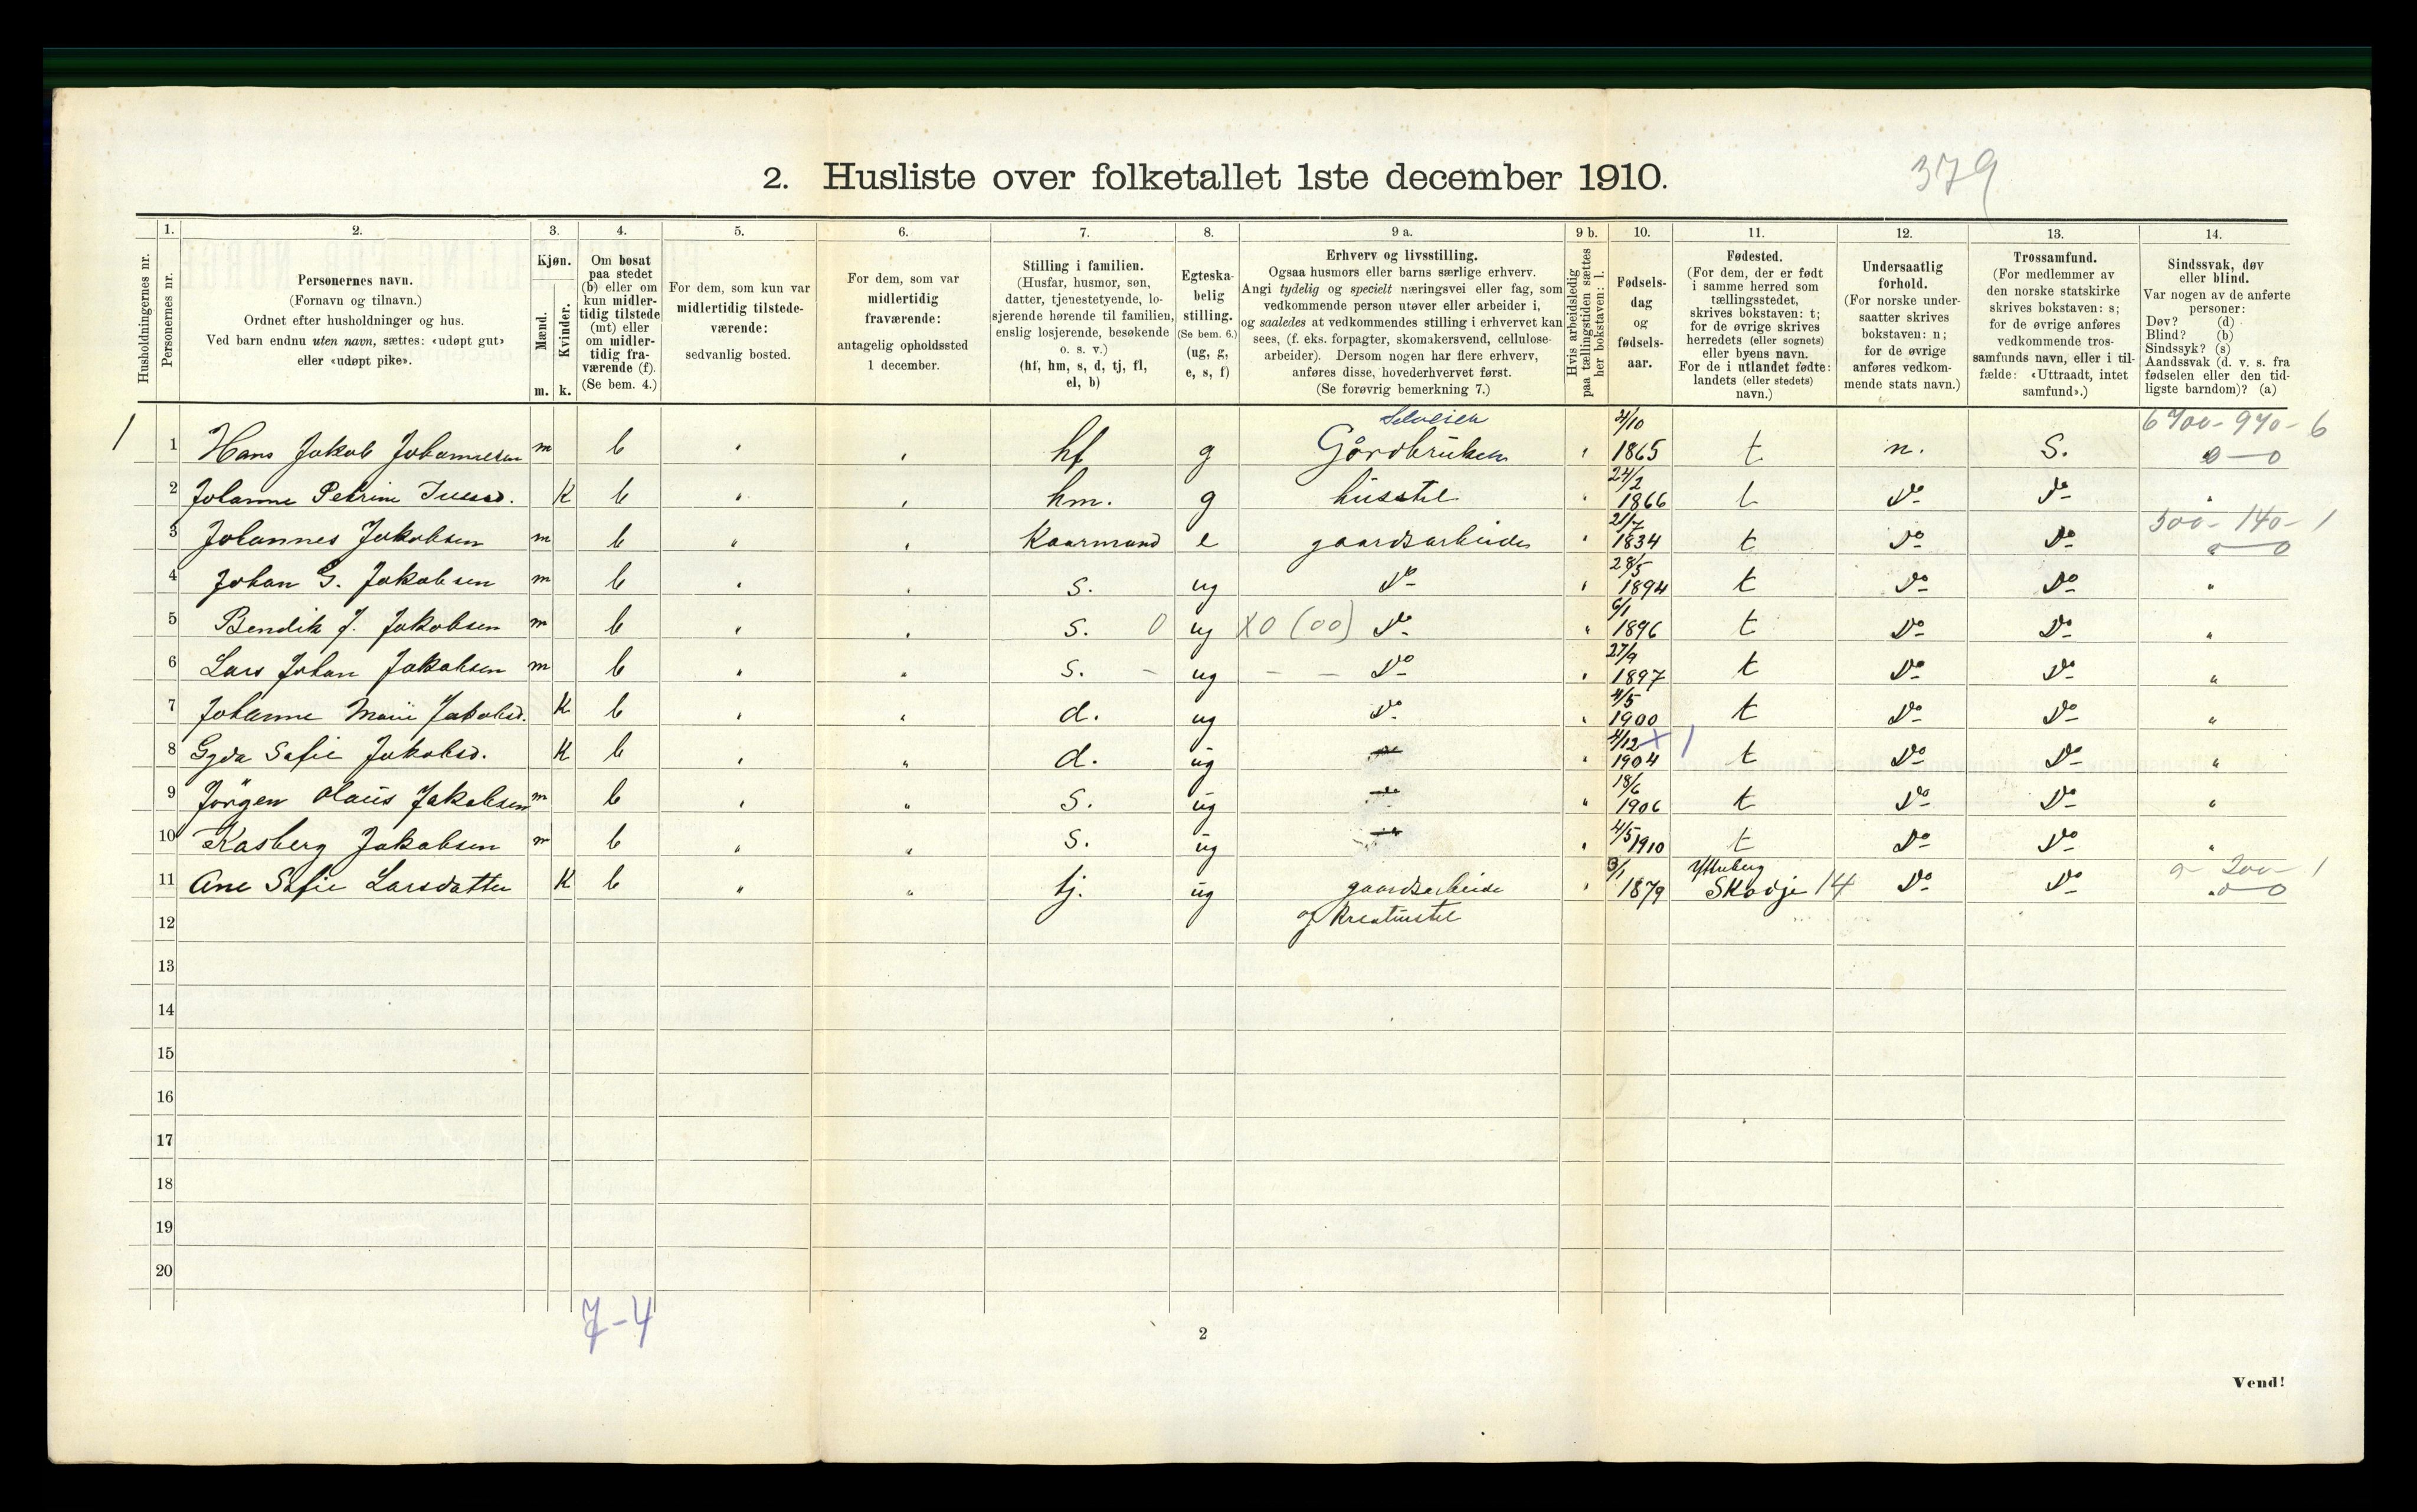 2. Husliste over folketallet 1ste december 1910.
379
Husholdningernes nr.
1.
Personernes nr.
2.
Personernes navn.
(Fornavn og tilnavn.)
Ordnet efter husholdninger og hus.
Ved barn endnu uten navn, sættes: «udøpt gut»
eller «udøpt pike».
3.
Kjøn.
Mænd.
Kvinder.
m. k.
4.
Om bosat
paa stedet
(b) eller om
kun midler-
tidig tilstede
(mt) eller
om midler-
tidig fra-
værende (f).
(Se bem. 4.)
5.
For dem, som kun var
midlertidig tilstede-
værende:
sedvanlig bosted.
6.
For dem, som var
midlertidig
fraværende:
antagelig opholdssted
1 december.
7.
Stilling i familien.
(Husfar, husmor, søn,
datter, tjenestetyende, lo-
sjerende hørende til familien,
enslig losjerende, besøkende
o. s. v.)
(hf, hm, s, d, tj, fl,
el, b)
8.
Egteska-
belig
stilling.
(Se bem. 6.)
(ug, g,
e, s, f)
9 a.
Erhverv og livsstilling.
Ogsaa husmors eller barns særlige erhverv.
Angi tydelig og specielt næringsvei eller fag, som
vedkommende person utøver eller arbeider i,
og saaledes at vedkommendes stilling i erhvervet kan
sees, (f. eks. forpagter, skomakersvend, cellulose-
arbeider). Dersom nogen har flere erhverv,
anføres disse, hovederhvervet først.
(Se forøvrig bemerkning 7.)
9 b.
Hvis arbeidsledig
paa tællingstiden sættes
her bokstaven: l.
10.
Fødsels-
dag
og
fødsels-
aar.
11.
Fødested.
(For dem, der er født
i samme herred som
tællingsstedet,
skrives bokstaven: t;
for de øvrige skrives
herredets (eller sognets)
eller byens navn.
For de i utlandet fødte:
landets (eller stedets)
navn.)
12.
Undersaatlig
forhold.
(For norske under-
saatter skrives
bokstaven: n;
for de øvrige
anføres vedkom-
mende stats navn.)
13.
Trossamfund.
(For medlemmer av
den norske statskirke
skrives bokstaven: s;
for de øvrige anføres
vedkommende tros-
samfunds navn, eller i til-
fælde: «Uttraadt, intet
samfund».)
14.
Sindssvak, døv
eller blind.
Var nogen av de anførte
personer:
Døv? (d)
Blind? (b)
Sindssyk? (s)
Aandssvak (d. v. s. fra
fødselen eller den tid-
ligste barndom)? (a)
Selveier 6700-970-6
1 1 Hans Jakob Johannesen m b " " hf g Gårdbruker " 1865 t n. S. 0-0
2 Johanne Petrine K b " " hm. g husstel " 24/2 1866 t Do Do "
300-140-1
3 Johannes Jakobsen m b " " Kaarmand e gaardsarbeide " 21/7 1834 t Do Do 0
4 Johan G. Jakobsen m b " " S. ug Do " 28/5 1894 t Do Do "
5 Bendik J. Jakobsen m b " " S. 0 ug X0 (00) Do " 6/1 1896 t Do Do "
6 Lars Johan Jakobsen m b " " S. - ug - - Do " 27/9 1897 t Do Do "
7 Johanne Marie Jakobsd. K b " " d. ug Do " 4/5 1900 t Do Do "
8 Gyda Sofie Jakobsd. K b " " d. ug " 4/12 X 1 1904 t Do Do "
9 Jörgen Olaus Jakobsen m b " " S. ug " 18/6 1906 t Do Do "
10 Kasberg Jakobsen m b " " S. ug " 4/5 1910 t Do Do "
11 Ane Sofie Larsdatter K b " " tj. ug gaardsarbeide " 3/1 1879 Skodje 14 Do Do 200-1 0
12 og Kreaturstel
13
14
15
16
17
18
19
20
7-4
2
Vend!